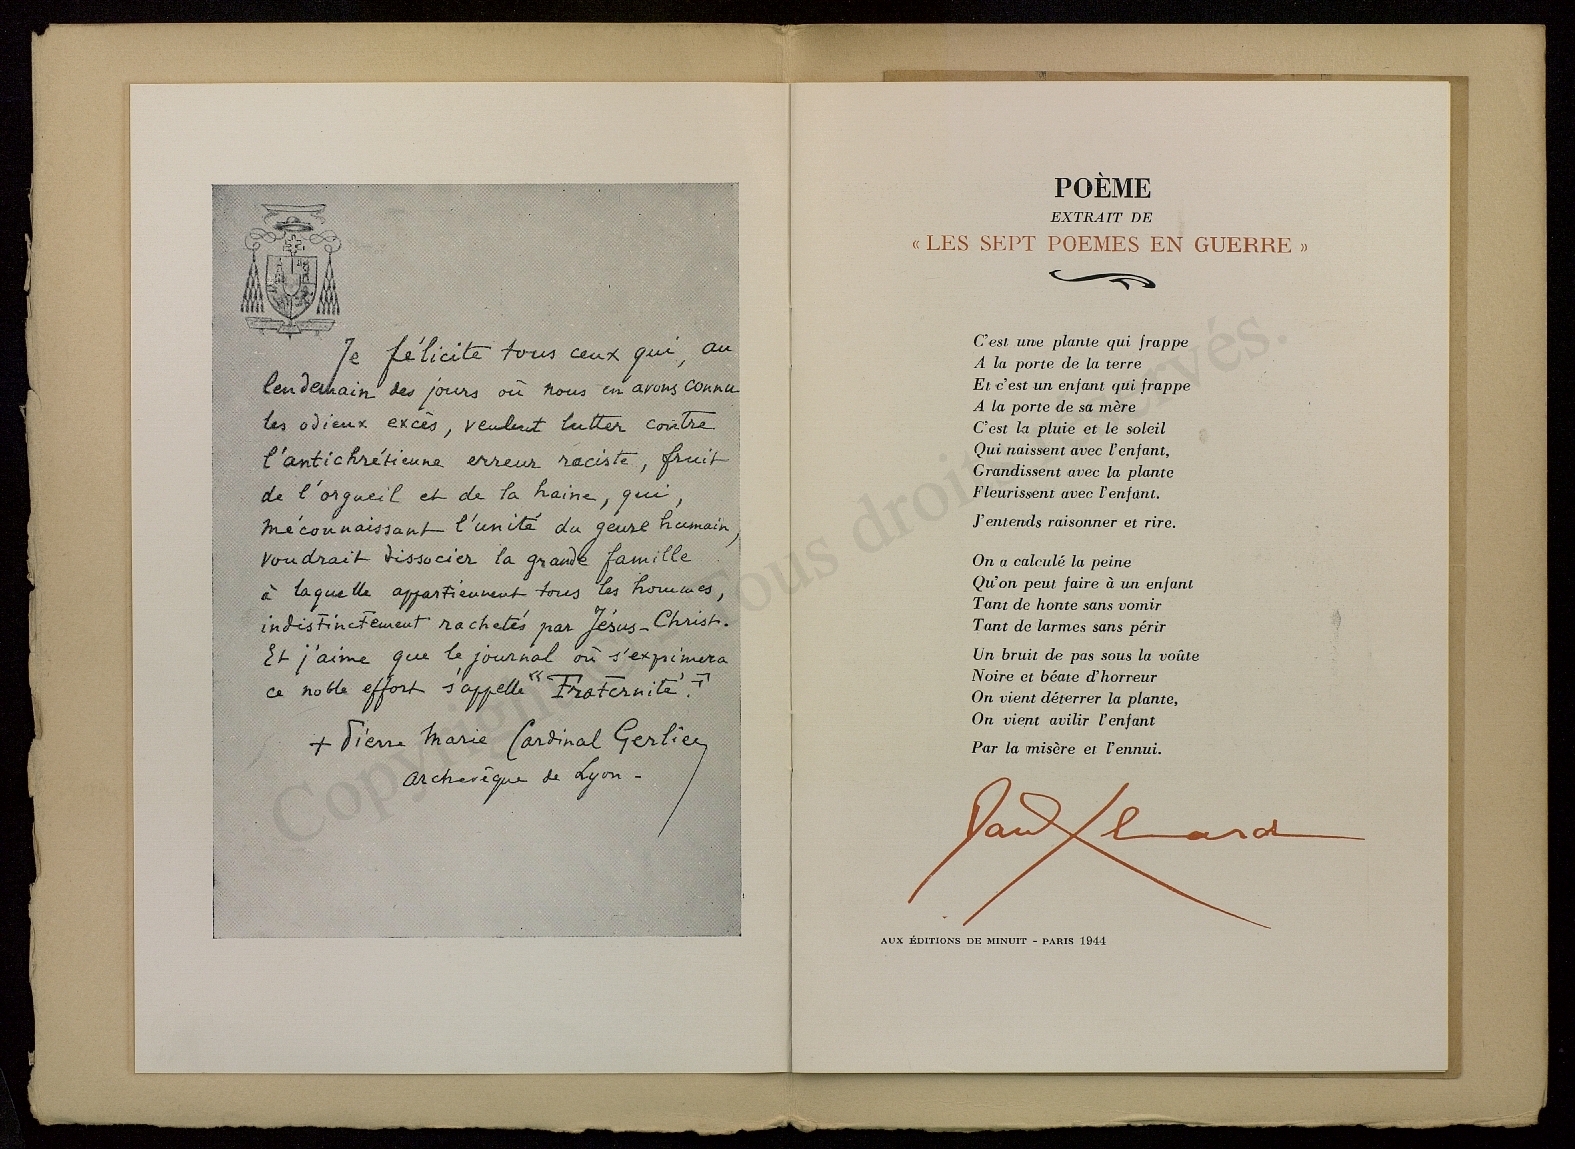 Je félicite tous ceux qui, au
lendemain des jours où nous en avons connu
les odieux excès, veulent lutter contre
l'antichrétienne erreur raciste, fruit
de l'orgueil et de la haine, qui,
méconnaissant l'unité du genre humain,
voudrait dissocier la grande famille
à laquelle appartiennent tous les hommes,
indistinctement rachetés par Jésus-Christ.
Et j'aime que le journal où s'exprimera
ce noble effort s'appelle "Fraternité".
+ Pierre Marie Cardinal Gerlier
archevêque de Lyon -
POÈME
EXTRAIT DE
« LES SEPT POEMES EN GUERRE »
C'est une plante qui frappe
A la porte de la terre
Et c'est un enfant qui frappe
A la porte de sa mère
C'est la pluie et le soleil
Qui naissent avec l'enfant,
Grandissent avec la plante
Fleurissent avec l'enfant.
J'entends raisonner et rire.
On a calculé la peine
Qu'on peut faire à un enfant
Tant de honte sans vomir
Tant de larmes sans périr
Un bruit de pas sous la voûte
Noire et béate d'horreur
On vient déterrer la plante,
On vient avilir l'enfant
Par la misère et l'ennui.
Paul Eluard
AUX ÉDITIONS DE MINUIT - PARIS 1944
Copyright © - Tous droits réservés.